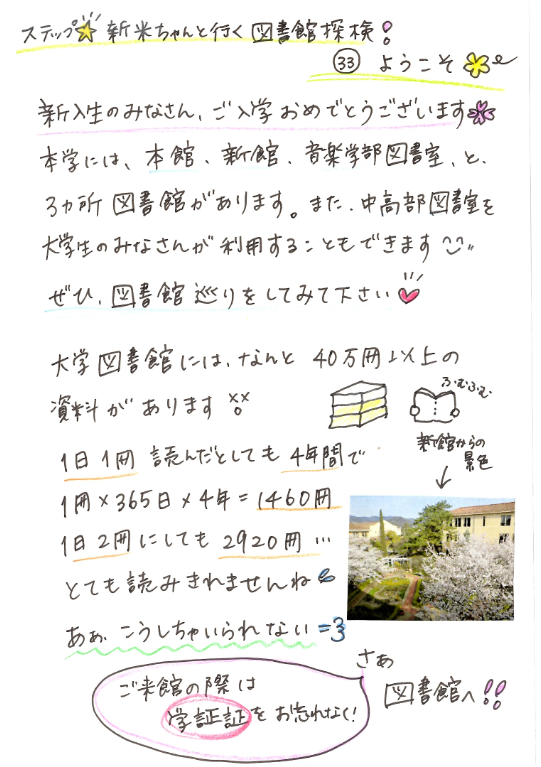 ステップ☆新米ちゃんと行く図書館探検！
㉝ ようこそ
新入生のみなさん、ご入学おめでとうございます
本学には、本館、新館、音楽学部図書室、と、
3ヵ所図書館があります。また、中高部図書室を
大学生のみなさんが利用することもできます
ぜひ、図書館巡りをしてみて下さい
大学図書館には、なんと40万冊以上の
資料があります
ふむふむ
新館からの
景色
1日1冊 読んだとしても4年間で
1冊×365日×4年=1460冊
1日2冊にしても2920冊…
とても読みきれませんね
あぁ、こうしちゃいられない=3
さぁ
図書館へ!!
ご来館の際は
学証証をお忘れなく!